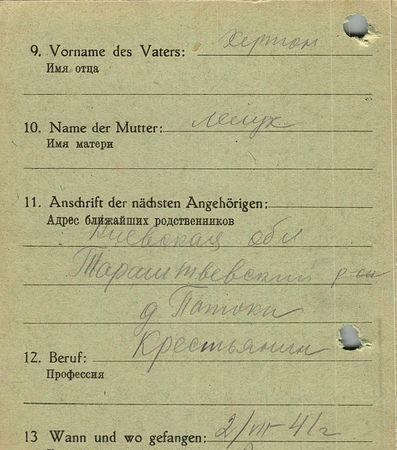 9. Vorname des Vaters: Хертон
Имя отца
10. Name der Mutter: Мелук
Имя матери
11. Anschrift der nächsten Angehörigen:
Адрес ближайших родственников
Киевская обл
р-он
д Потоки
12. Beruf: Крестьянин
Профессия
13 Wann und wo gefangen: 2/VIII-41г